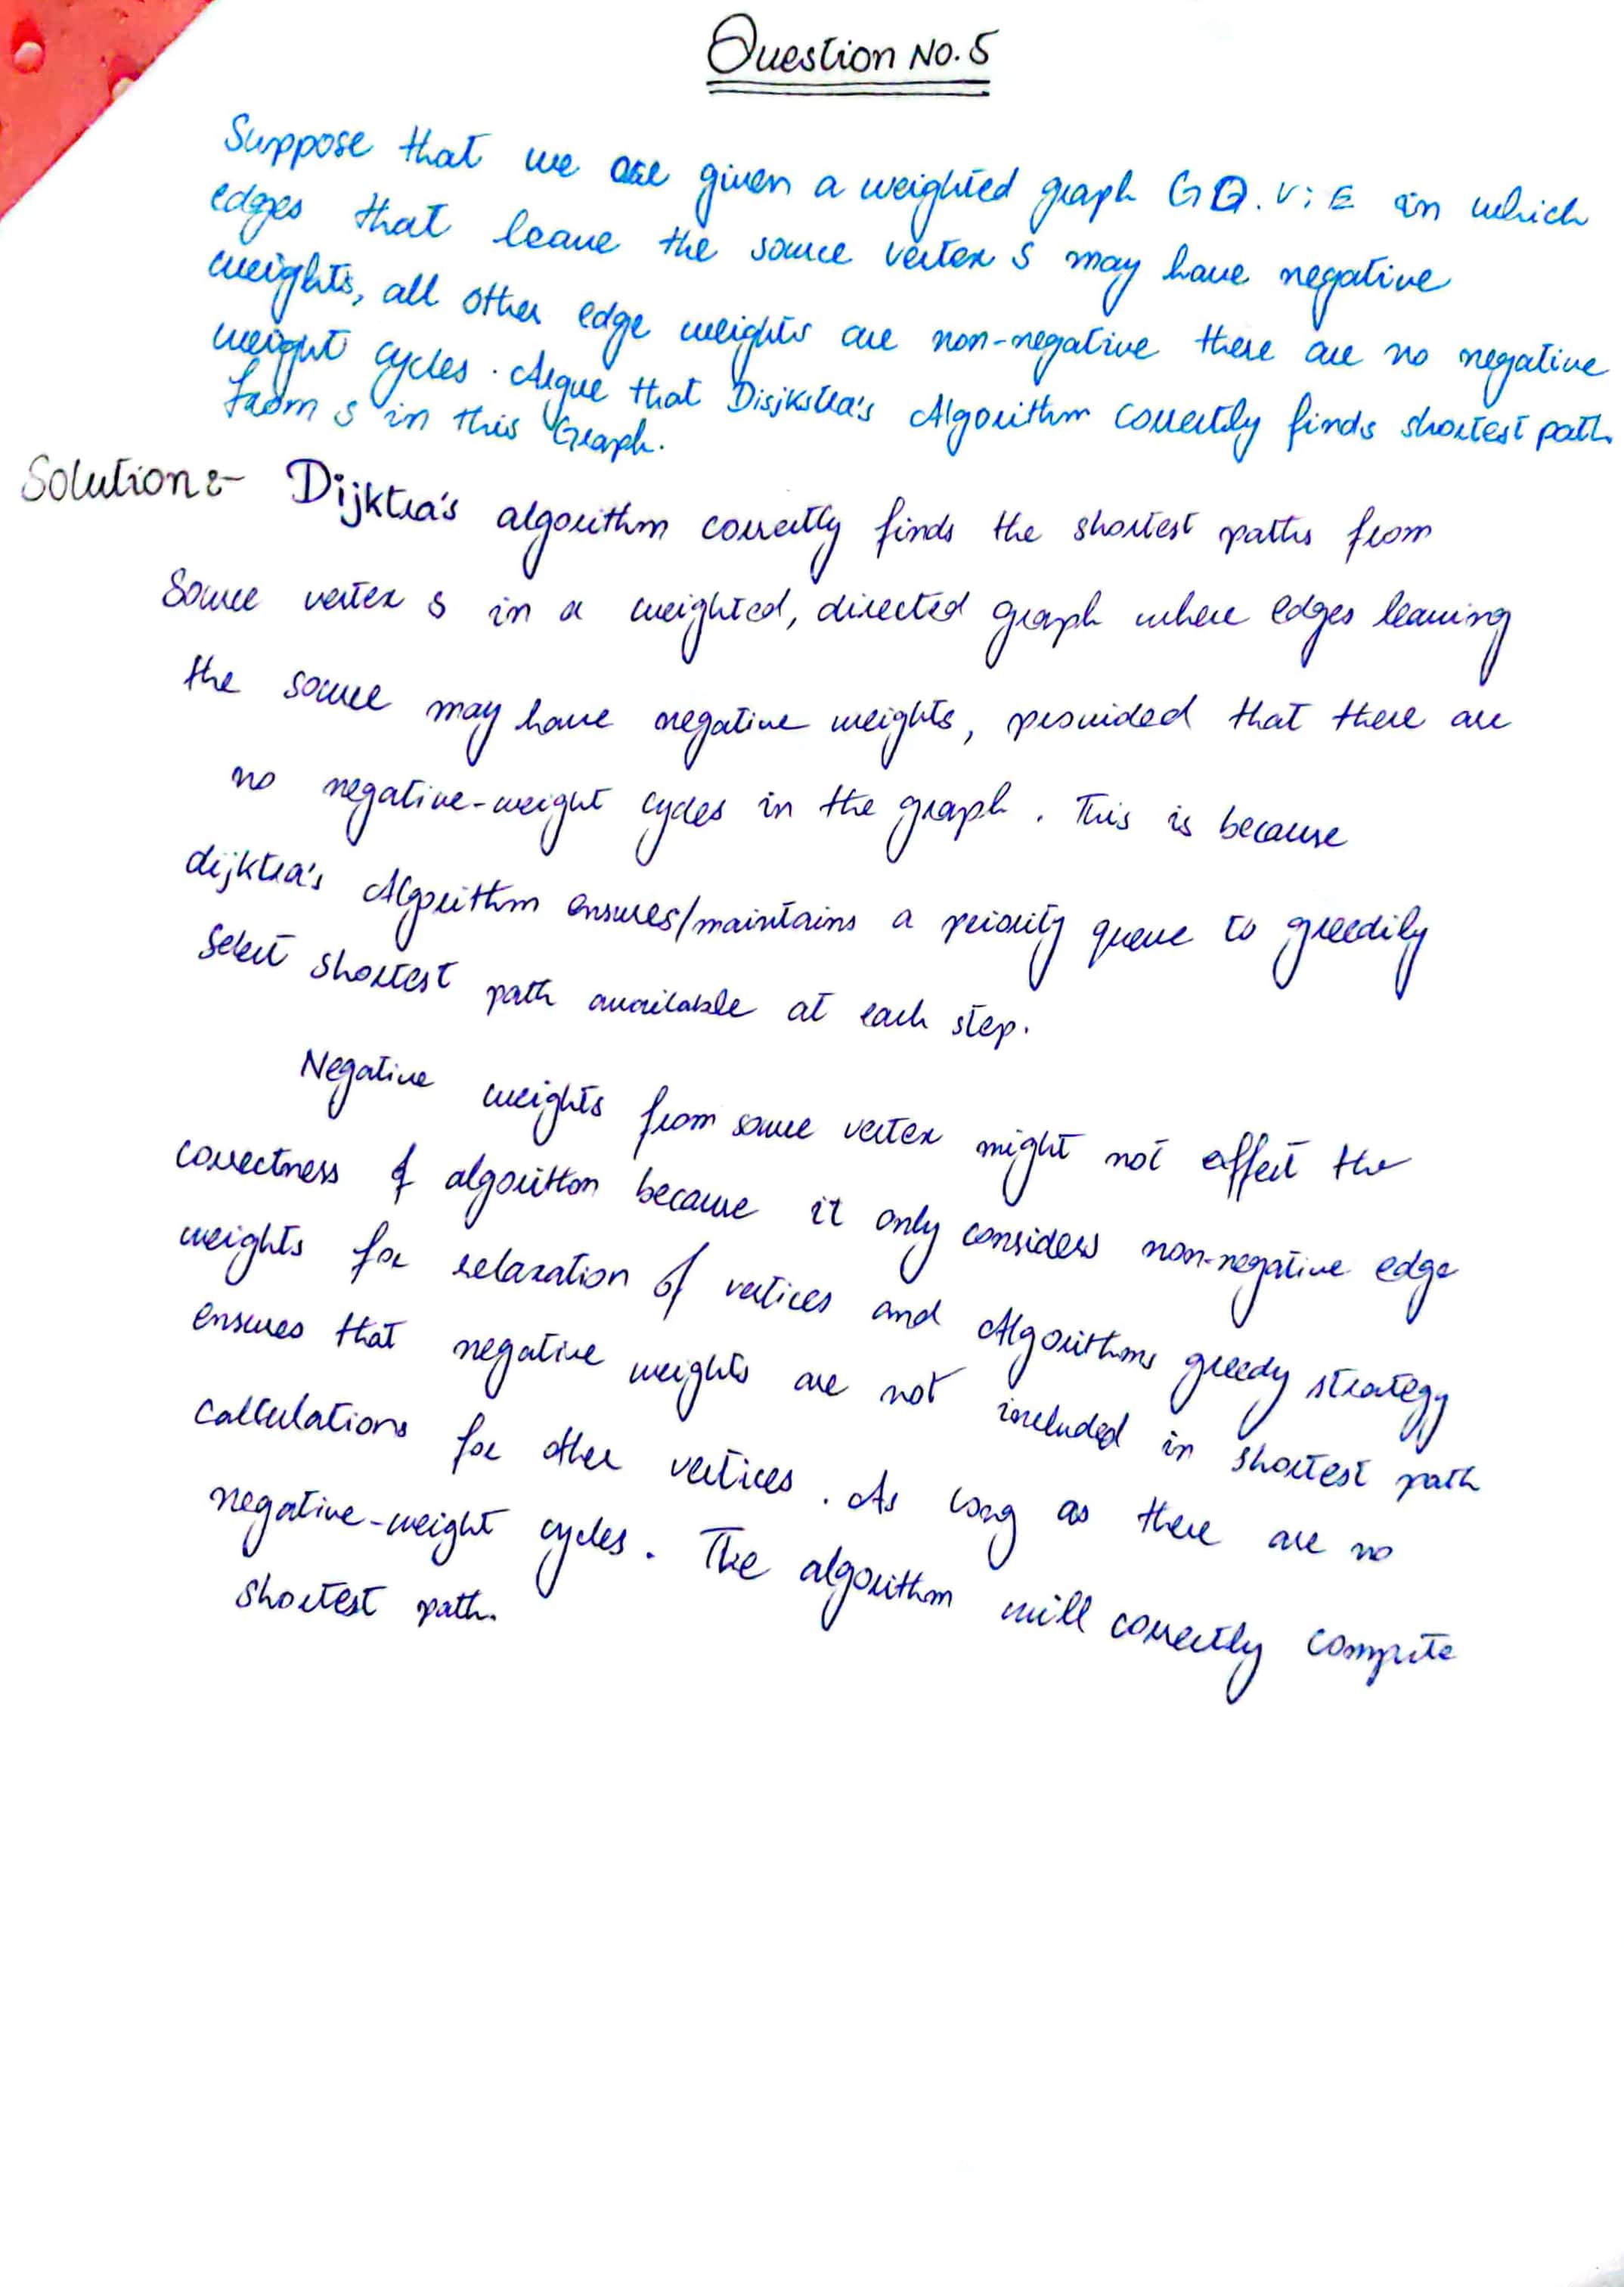 Question No. 5
Suppose that we are given a weighted graph G Q. V; E in which
edges that leave the source vertex S may have negative
weights, all other edge weights are non-negative there are no negative
weight cycles. Argue that Disjkstra's Algorithm correctly finds shortest path
from s in this Graph.
Solution:- Dijktra's algorithm correctly finds the shortest paths from
Source vertex s in a weighted, directed graph where edges leaving
the source may have negative weights, provided that there are
no negative-weight cycles in the graph. This is because
dijktra's Algorithm ensures/maintains a priority queue to greedily
select shortest path available at each step.
Negative weights from source vertex might not effect the
correctness of algorithm because it only considers non-negative edge
weights for relaxation of vertices and Algorithms greedy strategy
ensures that negative weights are not included in shortest path
calculations for other vertices. As long as there are no
negative-weight cycles. The algorithm will correctly compute
shortest path.